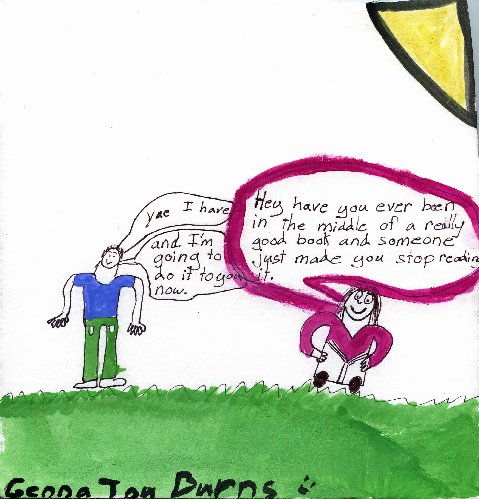 Hey have you ever been
in the middle of a really
good book and someone
just made you stop reading
it.
yae I have
and I'm
going to
do it to you
now.
Genna Tou Burns